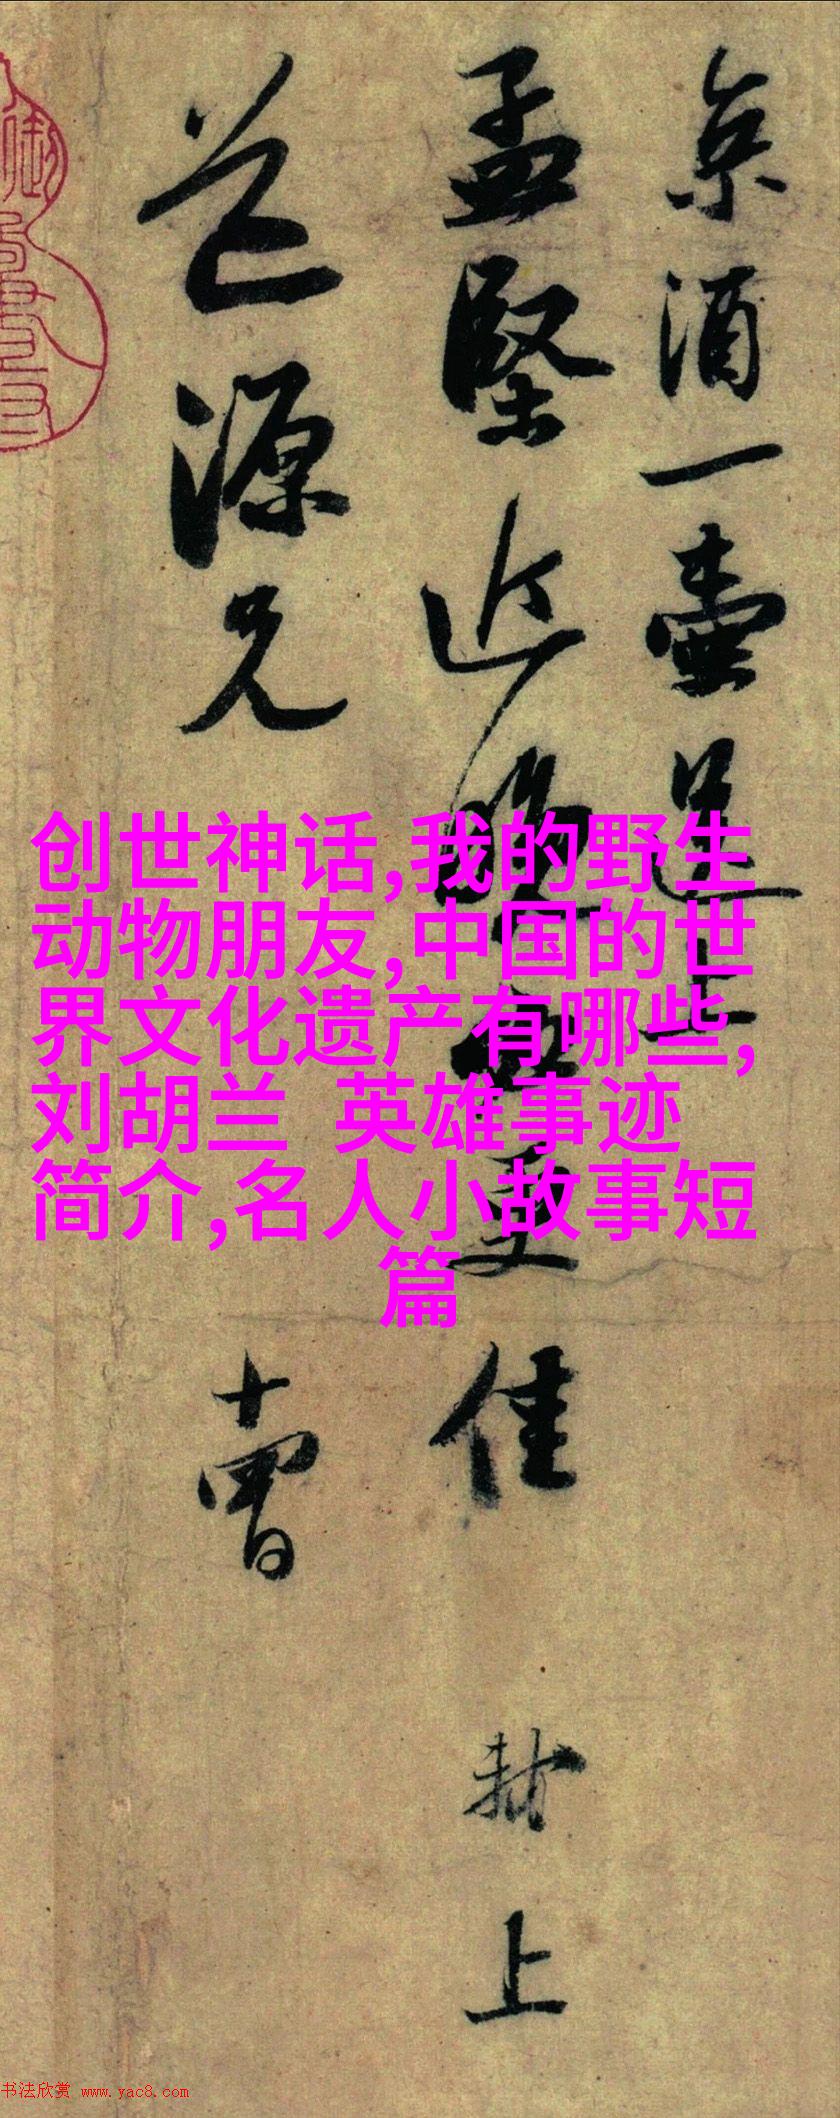 京酒一壺送上
孟堅近晚必更佳 軾上
道源兄 十四日
创世神话,我的野生
动物朋友,中国的世
界文化遗产有哪些,
刘胡兰 英雄事迹
简介,名人小故事短
篇
书法欣赏 www.yac8.com